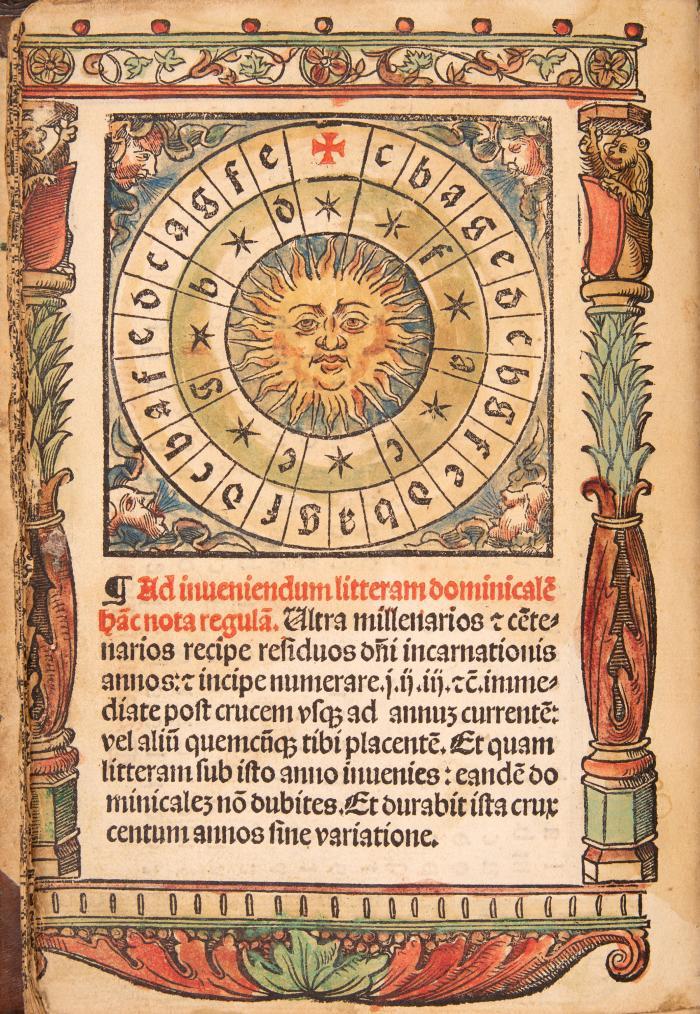 ✠ c b a g e d c b g f e d b a g f d c b a f e d c a g f e
f a c e g b d
¶ Ad inueniendum litteram dominicalē
hāc nota regulā. Ultra millenarios ⁊ cēte⸗
narios recipe residuos dn̄i incarnationis
annos:⁊ incipe numerare.j.ij.iij.⁊c̄.imme⸗
diate post crucem vsqꝫ ad annuꝫ currentē:
vel aliū quemcūqꝫ tibi placentē. Et quam
litteram sub isto anno inuenies : eandē do
minicaleꝫ nō dubites.Et durabit ista crux
centum annos sine variatione.